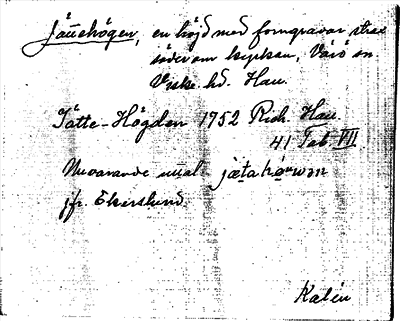 Jättehögen, en höjd med forngravar strax
söder om kyrkan, Värö sn
Viske hd. Hall.
Jätte-Högden 1752 Rich. Hall.
41 Tab VII
Nuvarande uttal
jfr. Ekerslund
Kalén